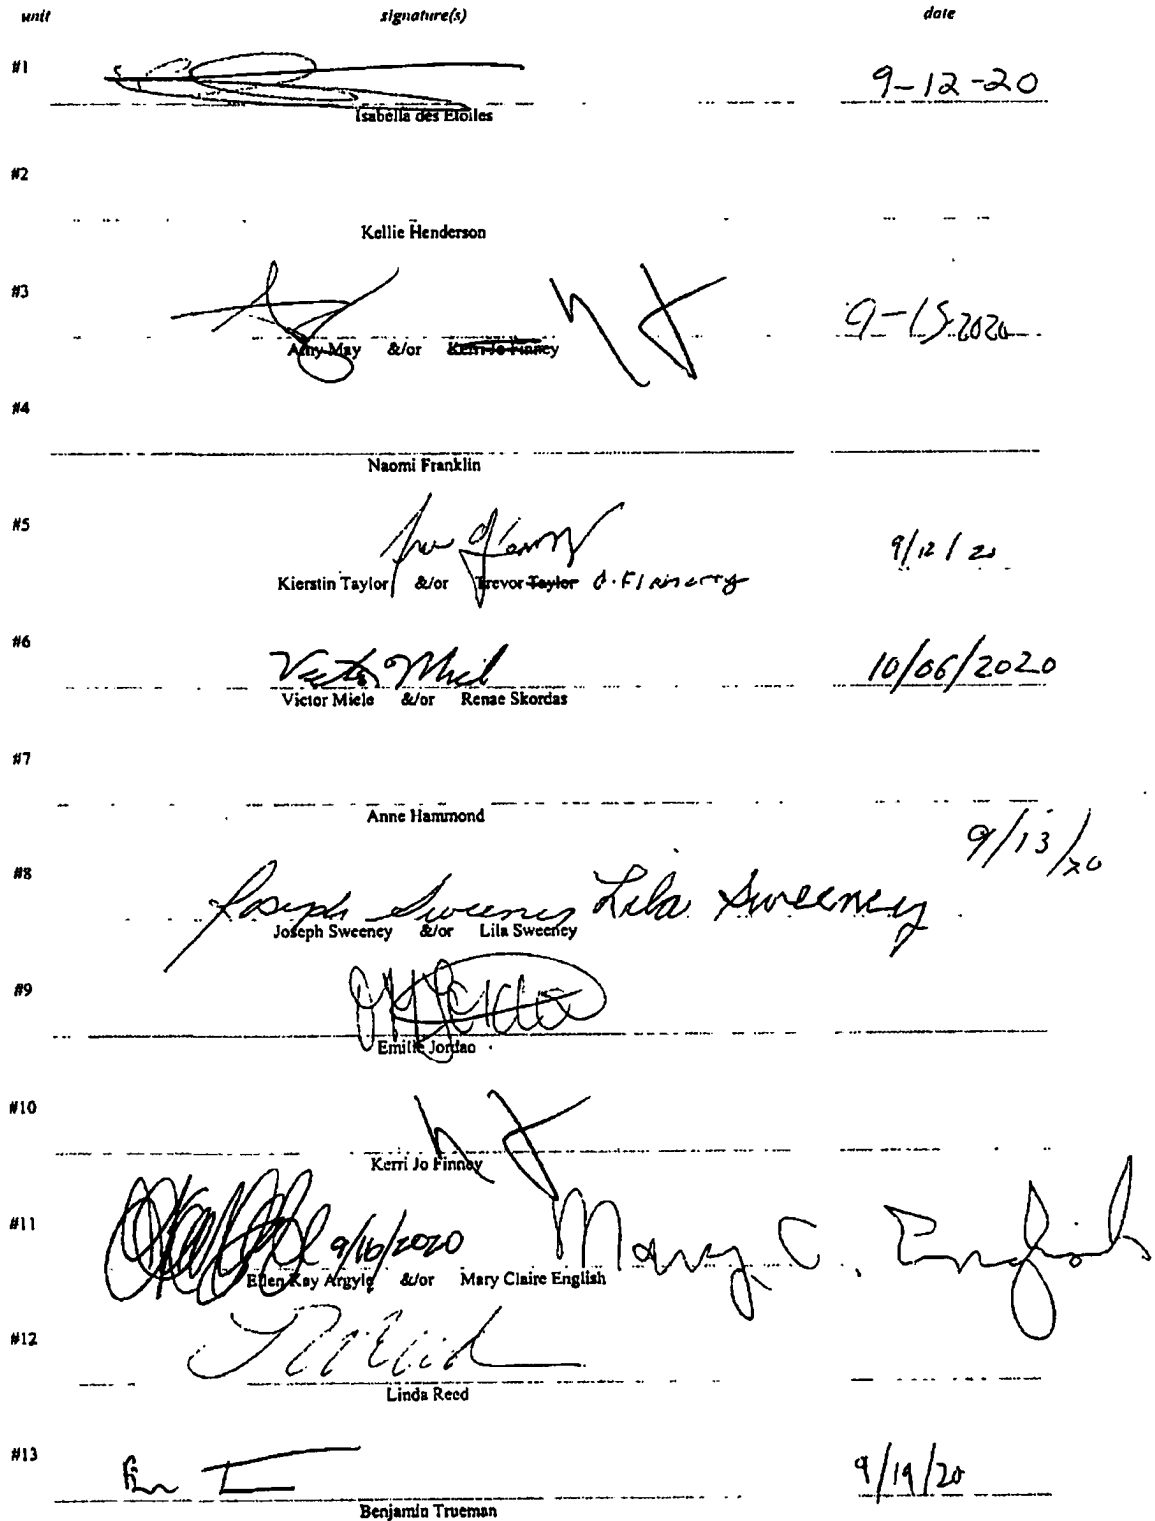 unit signature(s) date
#1 9-12-20
Isabella des Etoiles
#2
Kellie Henderson
#3 9-15-2020
Amy May &/or Kerri Jo Finney
#4
Naomi Franklin
#5 9/12/20
Kierstin Taylor &/or Trevor Taylor O'Flaherty
#6 Victor Miele 10/06/2020
Victor Miele &/or Renae Skordas
#7
Anne Hammond
9/13/20
#8 Joseph Sweeney Lila Sweeney
Joseph Sweeney &/or Lila Sweeney
#9
Emilie Jordan
#10
Kerri Jo Finney
#11 9/16/2020 Mary C. English
Ellen Kay Argyle &/or Mary Claire English
#12
Linda Reed
#13 9/19/20
Benjamin Trueman